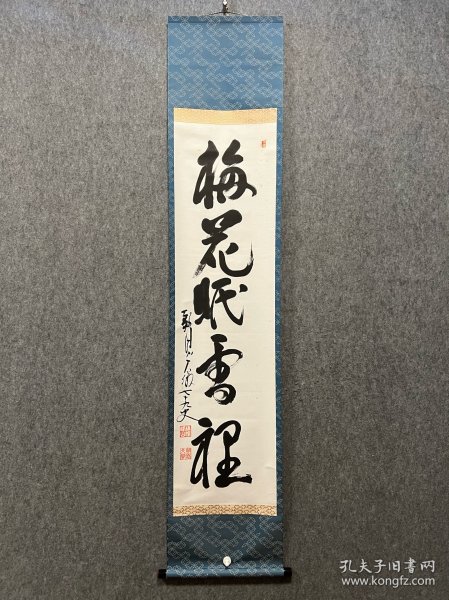 梅花眠雪裡
七十九叟
孔夫子旧书网
www.kongfz.com